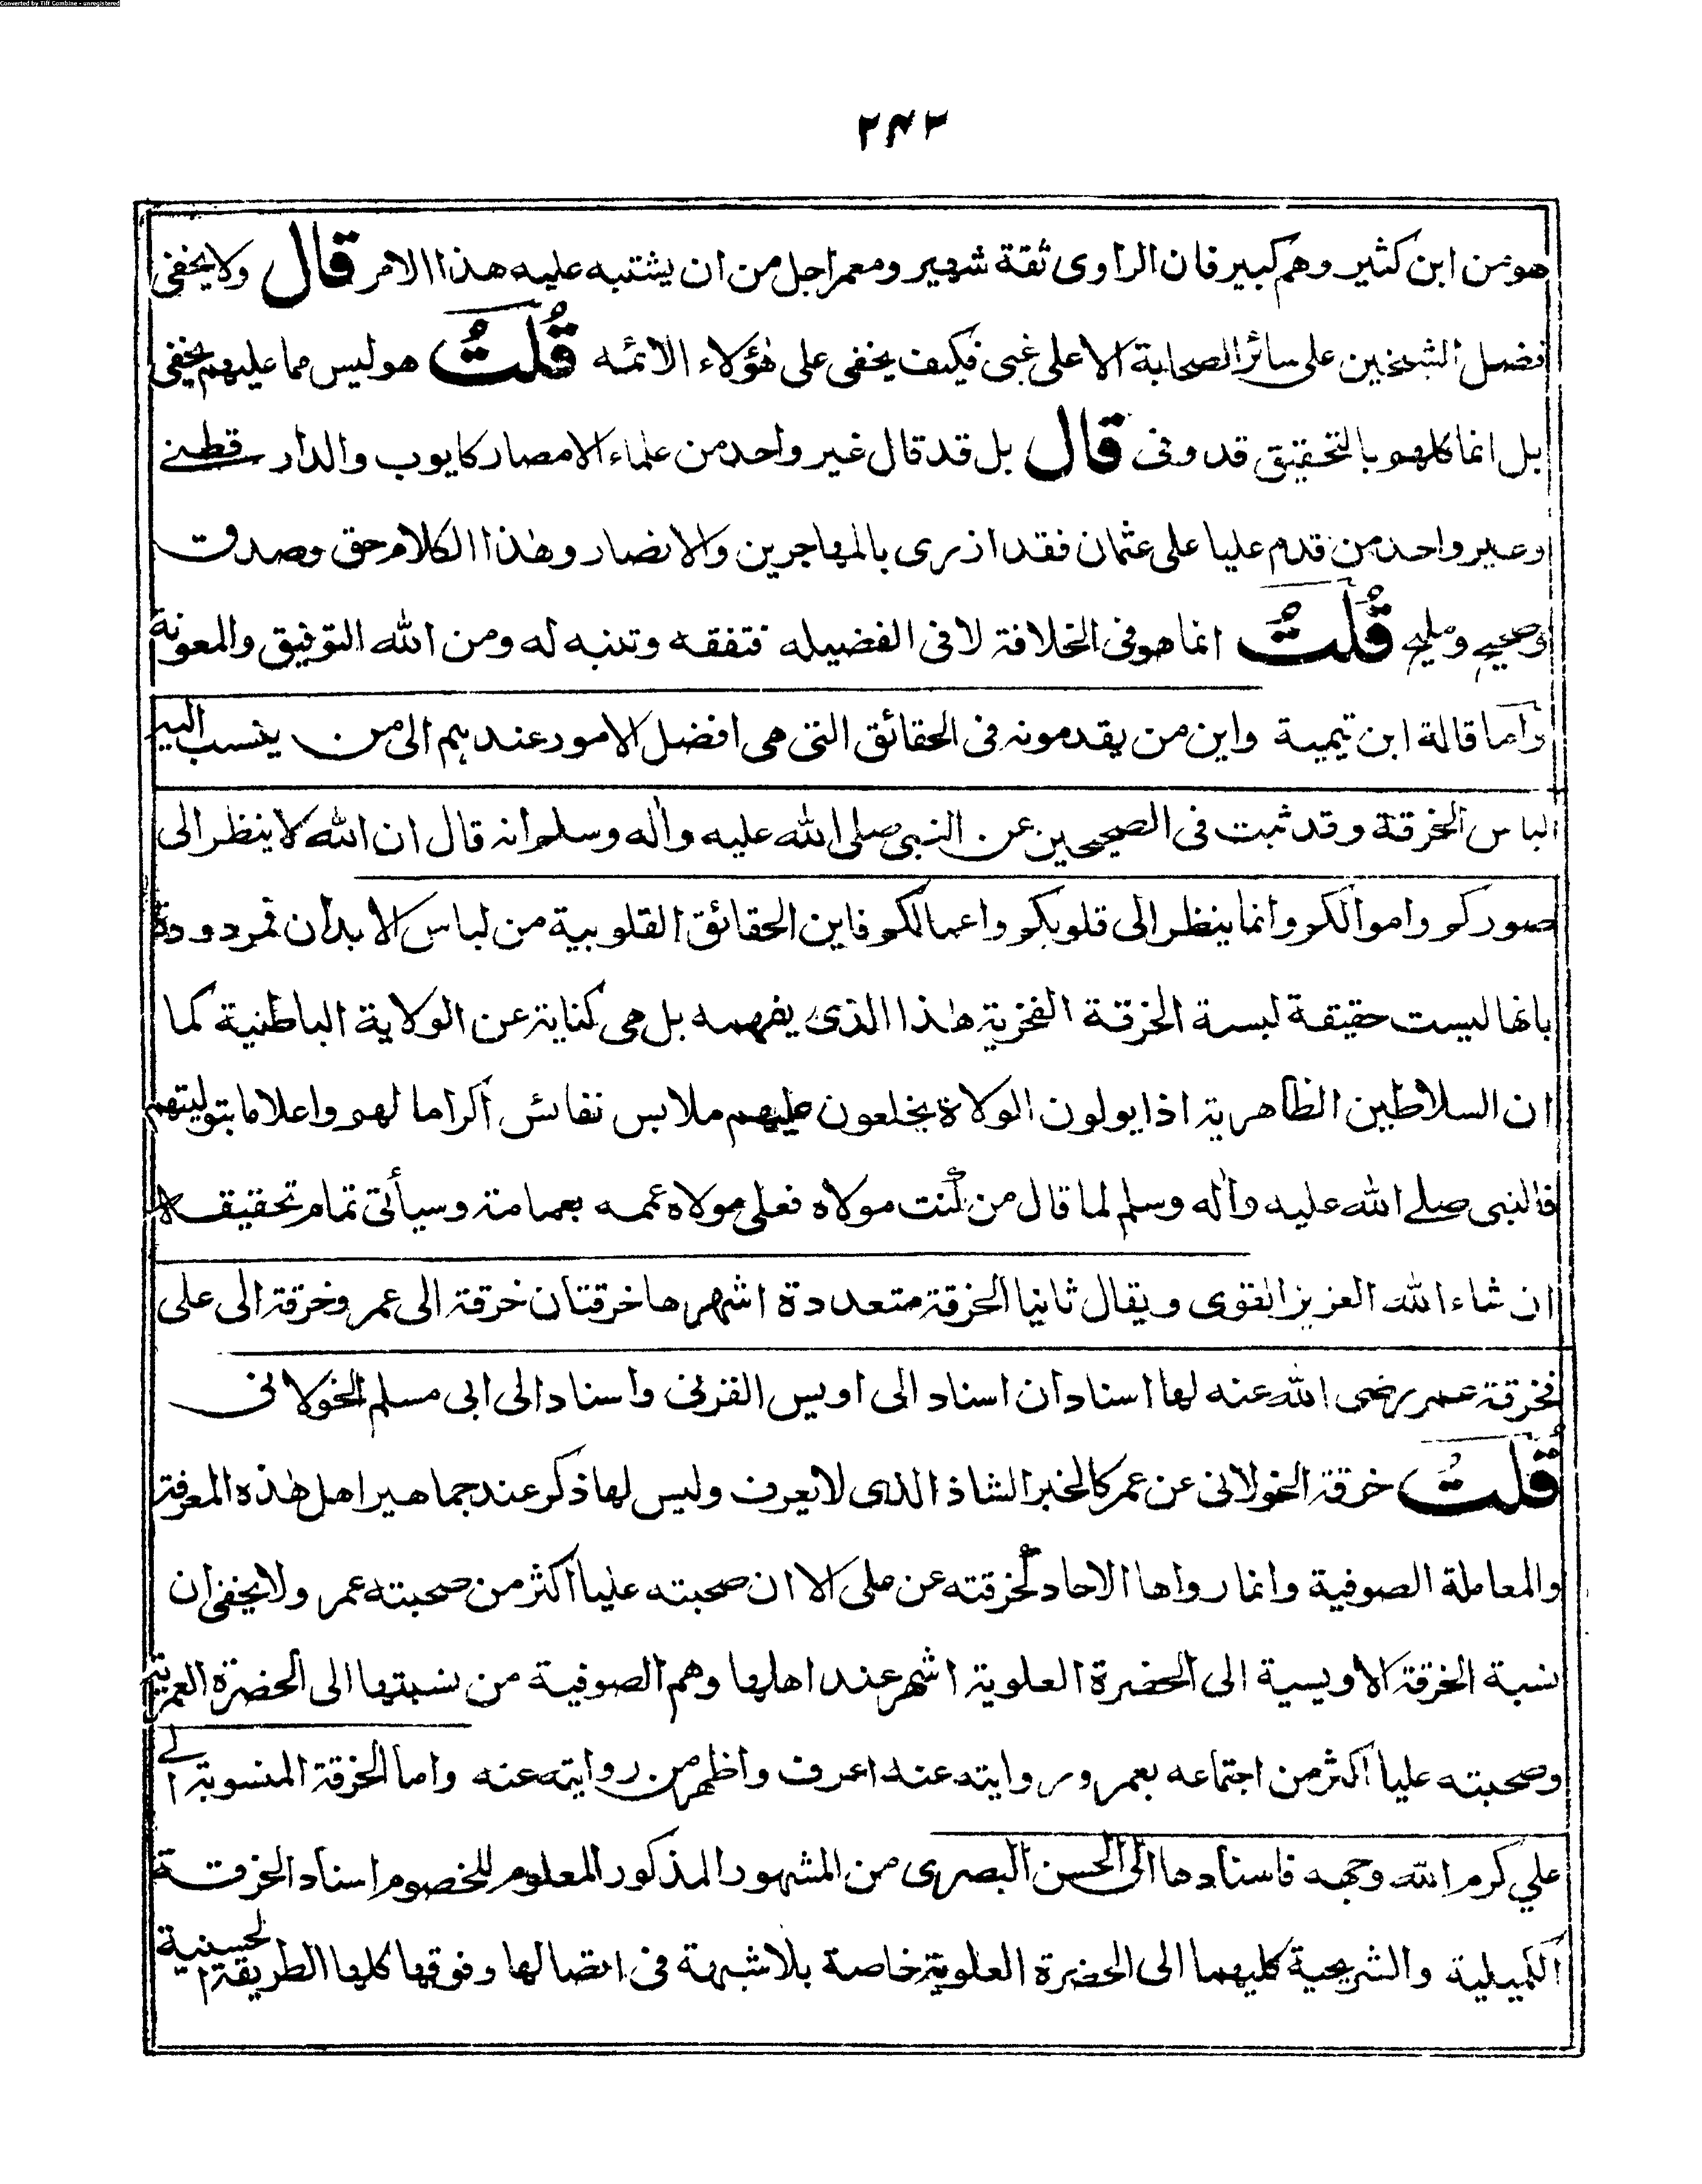 Converted by Tiff Combine - unregistered
٢٤٢
هو من ابن كثير وهم كبير فان الراوى ثقة شهير ومعمر اجل من ان يشتبه عليه هذا الامر قال ولا يخفى
فضل الشيخين على سائر الصحابة الا على غبى فكيف يخفى على هٰؤلاء الائمه قُلتُ هو ليس مما عليهم يخفى
بل انما كلهم بالتحقيق قد وفى قال بل قد قال غير واحد من علماء الامصار كايوب والدار قطنے
وغير واحد من قدم عليا على عثمان فقد ازرى بالمهاجرين والانصار وهٰذا الكلام حق وصدق
وصحيح ومليح قُلتُ انما هو فى الخلافة لا فى الفضيله فتفقه وتنبه له ومن الله التوفيق والمعونة
وأما قالة ابن تيمية واين من يقدمونه فى الحقائق التى هى افضل الامور عندهم الى من ينسب اليه
الباس الخرقة وقد ثبت فى الصحيحين عن النبى صلى الله عليه واٰله وسلم انه قال ان الله لا ينظر الى
صوركم واموالكم وانما ينظر الى قلوبكم واعمالكم فاين الحقائق القلوبية من لباس الابدان فمردودة
بانها ليست حقيقة لبسة الخرقة الفخرية هٰذا الذى يفهمه بل هى كناية عن الولاية الباطنية كما
ان السلاطين الظاهرية اذا يولون الولاة يخلعون عليهم ملابس نفائس اكراما لهم واعلاما بتوليتهم
فالنبى صلے الله عليه واٰله وسلم لما قال من كنت مولاه فعلى مولاه عممه بعمامة وسيأتى تمام تحقيقه
ان شاء الله العزيز القوى ويقال ثانيا الخرقة متعددة اشهرها خرقتان خرقة الى عمر وخرقة الى على
فخرقة عمر رضى الله عنه لها اسنادان اسناد الى اويس القرنى واسناد الى ابى مسلم الخولانى
قُلتُ خرقة الخولانى عن عمر كالخبر الشاذ الذى لا يعرف وليس لها ذكر عند جماهير اهل هٰذه المعرفة
والمعاملة الصوفية وانما رواها الاحاد كخرقته عن على الا ان صحبته عليا اكثر من صحبته عمر ولا يخفى ان
نسبة الخرقة الاويسية الى الحضرة العلوية اشهر عند اهلها وهم الصوفية من نسبتها الى الحضرة العمرية
وصحبته عليا اكثر من اجتماعه بعمر وروايته عنه اعرف واظهر من روايته عنه واما الخرقة المنسوبة الے
علي كرم الله وجهه فاسنادها الى الحسن البصرى من المشهور المذكور المعلوم للخصوم اسناد الخرقة
الكميلية والشريحية كليهما الى الحضرة العلوية خاصة بلا شبهة فى اتصالها وفوقها كلها الطريقة الحسنية